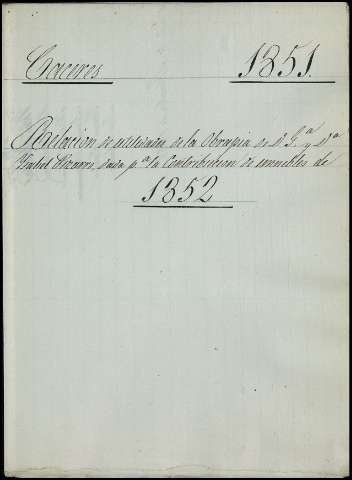 Caceres 1851.
Relacion de utilidades de la Obrapia de D. G.ª y D.ª
Ysabel dada p.ª la Contribucion de inmuebles de
1852